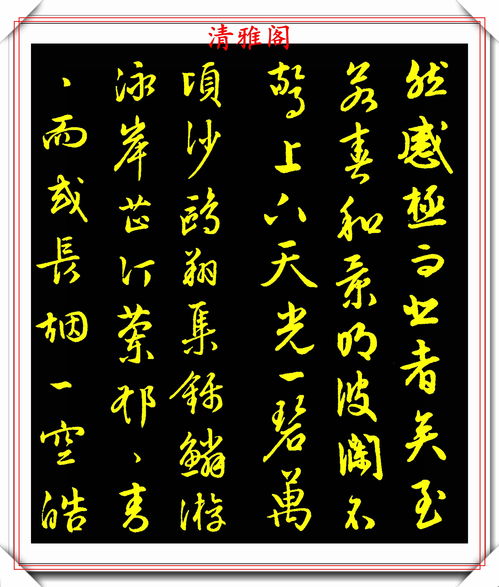 清雅阁
然感極而悲者矣至
若春和景明波瀾不
驚上下天光一碧萬
頃沙鷗翔集錦鱗游
泳岸芷汀蘭郁、青
、而或長烟一空皓